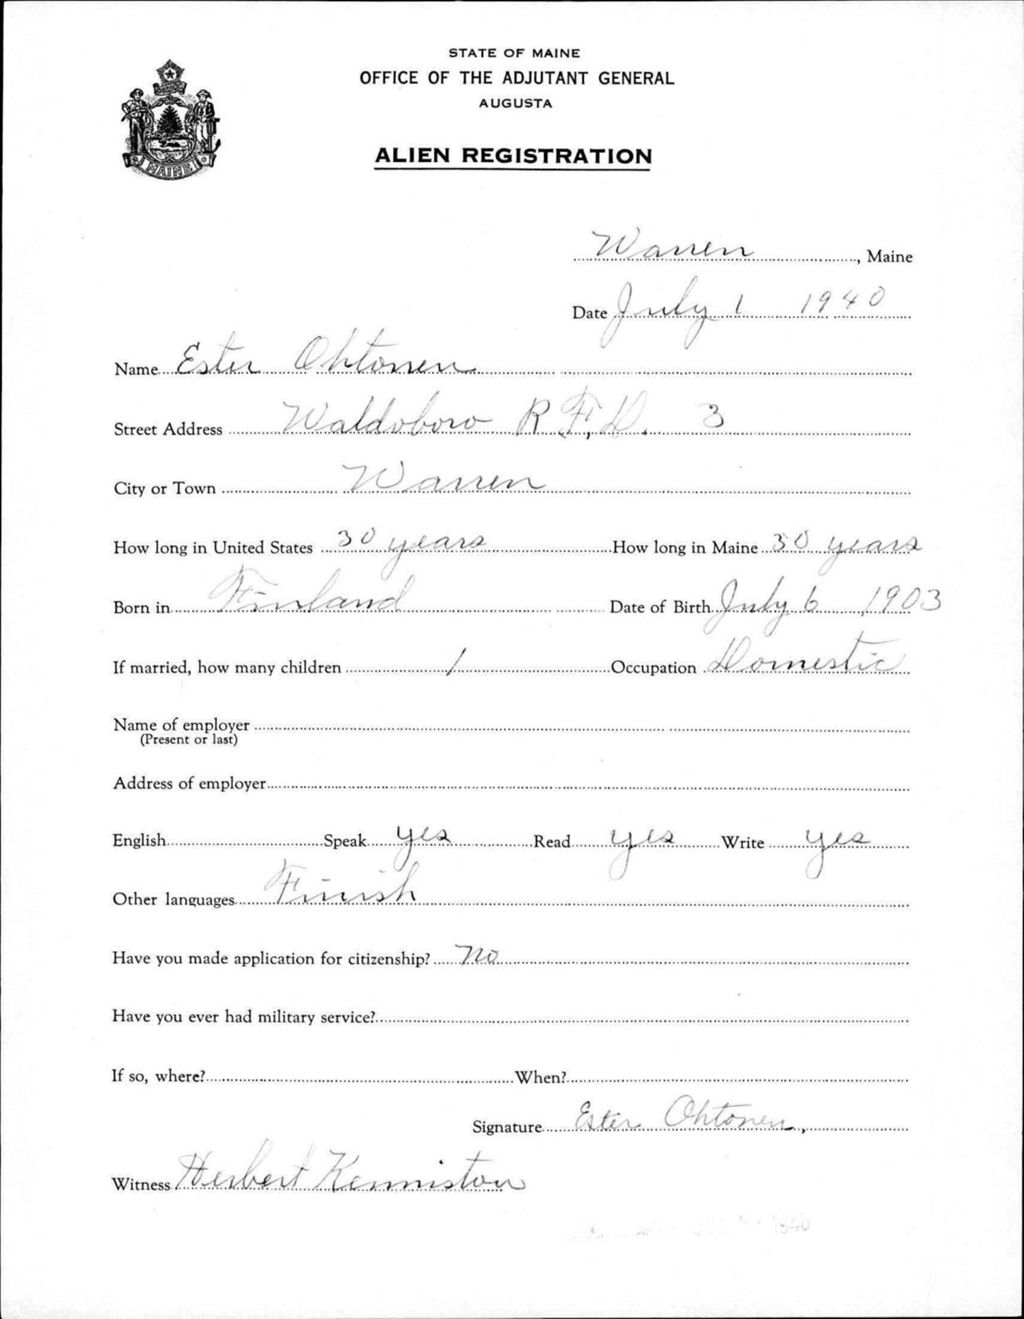 STATE OF MAINE
OFFICE OF THE ADJUTANT GENERAL
AUGUSTA
ALIEN REGISTRATION
MAINE
Warren, Maine
Date July 1 1940
Name Ester Ohtonen
Street Address Waldoboro R.F.D. 3
City or Town Warren
How long in United States 30 years How long in Maine 30 years
Born in Finland Date of Birth July 6, 1903
If married, how many children 1 Occupation Domestic
Name of employer
(Present or last)
Address of employer
English Speak yes Read yes Write yes
Other languages Finish
Have you made application for citizenship? No
Have you ever had military service?
If so, where? When?
Signature Ester Ohtonen,
Witness Herbert Kenniston